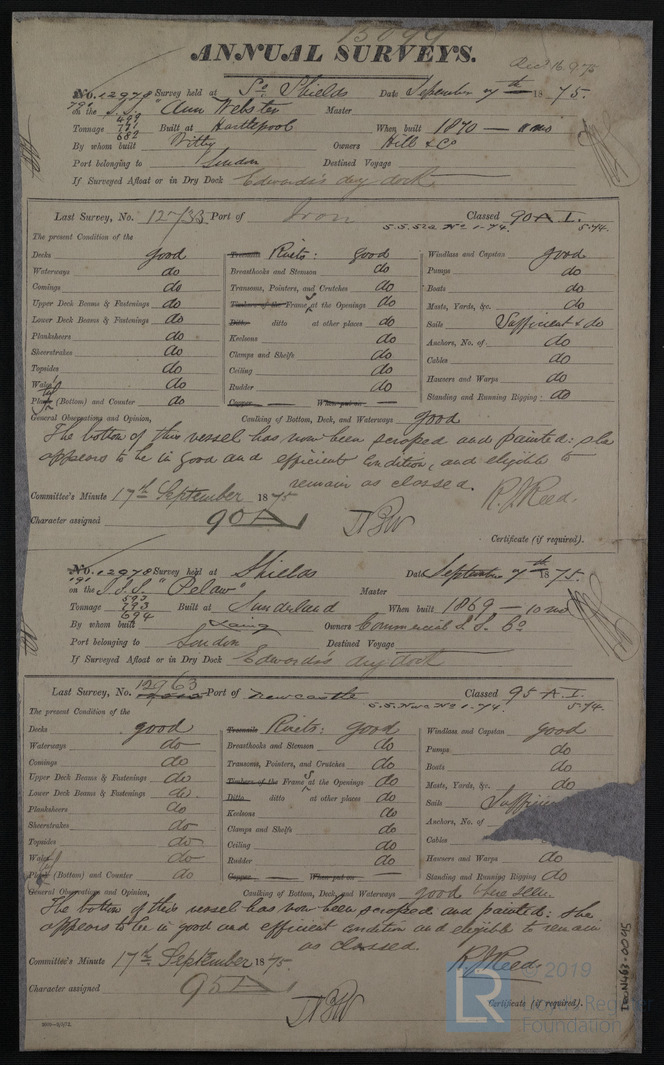 13099
ANNUAL SURVEYS.
No. 12978 Survey held at So Shields Date September 7th 1875.
on the S.S. "Ann Webster" Master
Tonnage 771 682 Built at Hartlepool When built 1870 — 11 mo
By whom built Owners Hill & Co
Port belonging to London Destined Voyage
If Surveyed Afloat or in Dry Dock Edwards's dry dock.
Last Survey, No. 12733 Port of Iron Classed 90 A.I.
S.S. No 1-74. 5.74.
The present Condition of the
Decks good Treenails Rivets: good Windlass and Capstan good
Waterways do Breasthooks and Stemson do Pumps do
Comings do Transoms, Pointers, and Crutches do Boats do
Upper Deck Beams & Fastenings do Timbers of the Frames at the Openings do Masts, Yards, &c. do
Lower Deck Beams & Fastenings do Ditto ditto at other places do Sails Sufficient & do
Planksheers do Keelsons do Anchors, No. of do
Sheerstrakes do Clamps and Shelfs do Cables do
Topsides do Ceiling do Hawsers and Warps do
Wales do Rudder do Standing and Running Rigging do
(Bottom) and Counter do Copper — When put on —
General Observations and Opinion, Caulking of Bottom, Deck, and Waterways good
The bottom of this vessel has now been scraped and painted: she
appears to be in good and efficient condition, and eligible to
remain as classed. R. J. Reed.
Committee's Minute 17th September 1875
Character assigned 90A
Certificate (if required).
No. 12978 Survey held at Shields Date September 7th 1875.
on the S.S. "Pelaw" Master
Tonnage 593 793 694 Built at Sunderland When built 1869 — 10 mo
By whom built Laing Owners Commercial S. S. Co
Port belonging to London Destined Voyage
If Surveyed Afloat or in Dry Dock Edwards's dry dock
Last Survey, No. 12963 Port of Newcastle Classed 95 A.I.
S.S. No 1-74. 5.74.
The present Condition of the
Decks good Treenails Rivets: good Windlass and Capstan good
Waterways do Breasthooks and Stemson do Pumps do
Comings do Transoms, Pointers, and Crutches do Boats do
Upper Deck Beams & Fastenings do Timbers of the Frames at the Openings do Masts, Yards, &c. do
Lower Deck Beams & Fastenings do Ditto ditto at other places do Sails
Planksheers do Keelsons do Anchors, No. of
Sheerstrakes do Clamps and Shelfs do Cables
Topsides do Ceiling do Hawsers and Warps do
Wales do Rudder do Standing and Running Rigging do
(Bottom) and Counter do Copper — When put on —
General Observations and Opinion, Caulking of Bottom, Deck, and Waterways good where seen.
The bottom of this vessel has now been scraped and painted: she
appears to be in good and efficient condition and eligible to remain
as classed.
Committee's Minute 17th September 1875. R. J. Reed
Character assigned 95A
Certificate (if required).
© 2019
LR
Lloyd's Register
Foundation
IRON463-0095